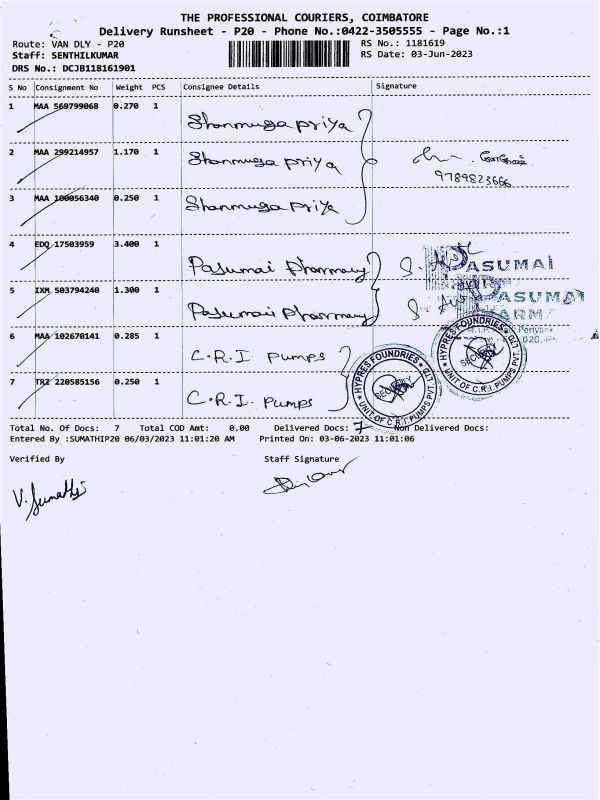 THE PROFESSIONAL COURIERS, COIMBATORE
Delivery Runsheet - P20 - Phone No.:0422-3505555 - Page No.:1
Route: VAN DLY - P20 RS No.: 1181619
Staff: SENTHILKUMAR RS Date: 03-Jun-2023
DRS No.: DCJB118161901
S No Consignment No Weight PCS Consignee Details Signature
1 MAA 569799068 0.270 1 Shanmuga priya
2 MAA 299214957 1.170 1 Shanmuga priya
9789823666
3 MAA 100056340 0.250 1 Shanmuga priya
4 EDQ 17503959 3.400 1 Pasumai Pharmacy PASUMAI
5 IXM 503794240 1.300 1 Pasumai Pharmacy PASUMAI
6 MAA 102670141 0.285 1 C.R.I Pumps
HYPRES FOUNDRIES
UNIT OF C.R.I.PUMPS PVT. LTD
SECURITY
7 TRZ 220585156 0.250 1 C.R.I. Pumps
HYPRES FOUNDRIES
UNIT OF C.R.I.PUMPS PVT. LTD
SECURITY
Total No. Of Docs: 7 Total COD Amt: 0.00 Delivered Docs: 7 Non Delivered Docs:
Entered By :SUMATHIP20 06/03/2023 11:01:20 AM Printed On: 03-06-2023 11:01:06
Verified By Staff Signature
V. Sumathi